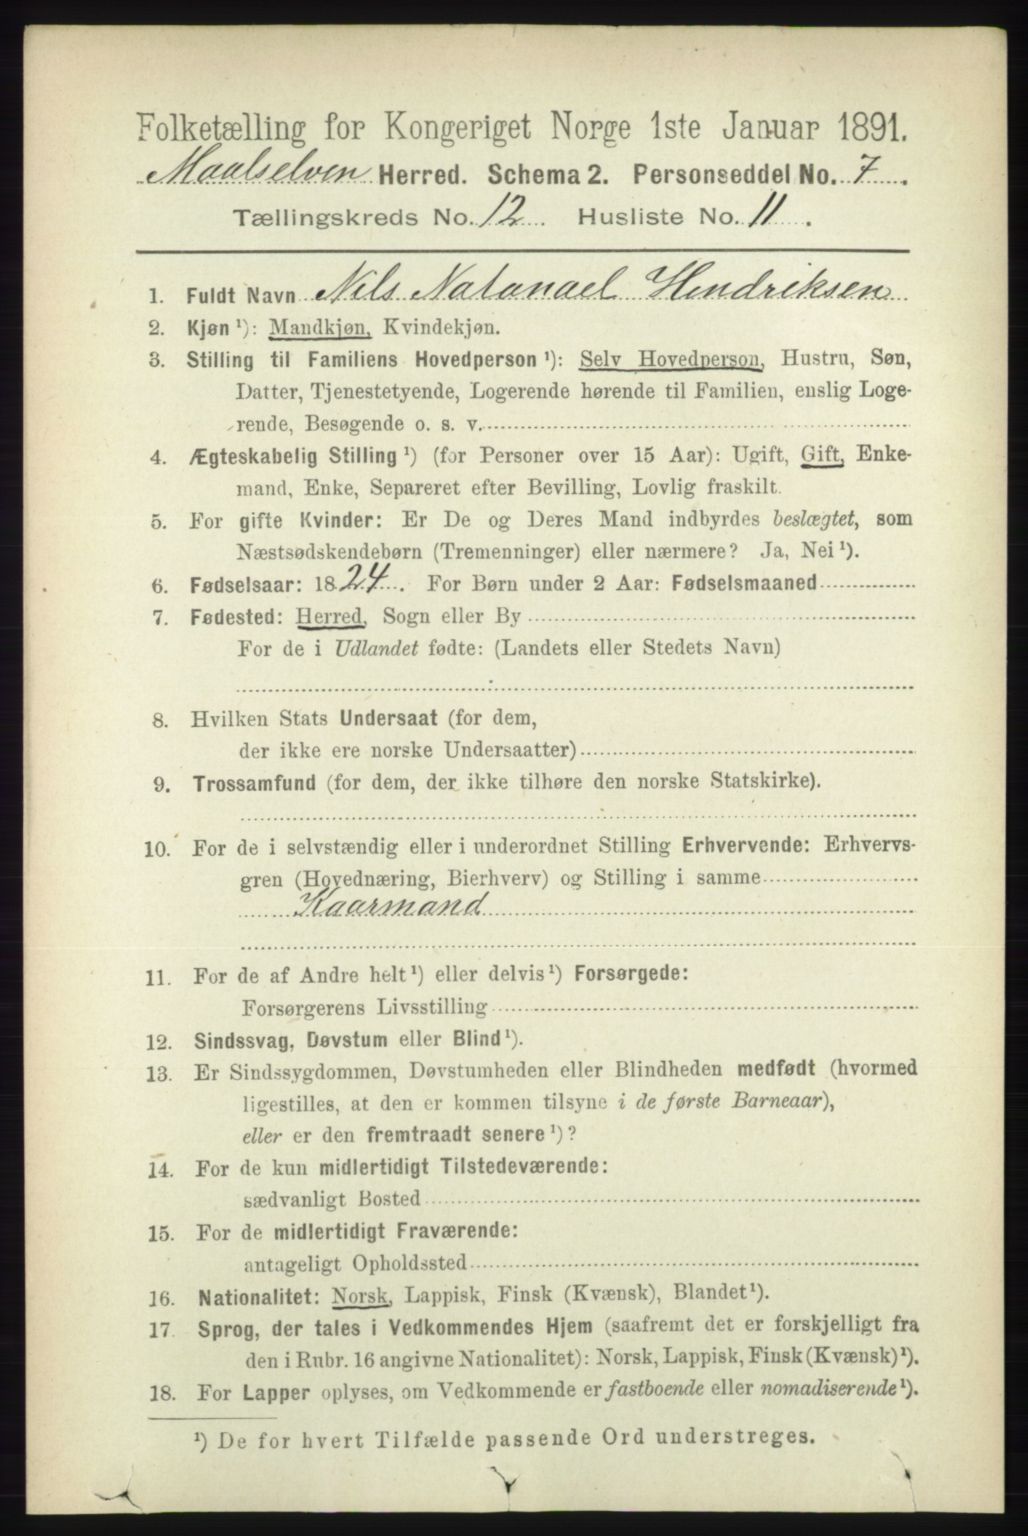 Folketælling for Kongeriget Norge 1ste Januar 1891.
Maalselven Herred. Schema 2. Personseddel No. 7.
Tællingskreds No. 12. Husliste No. 11.
1. Fuldt Navn Nils Natanael Hendriksen
2. Kjøn ¹): Mandkjøn, Kvindekjøn.
3. Stilling til Familiens Hovedperson ¹): Selv Hovedperson, Hustru, Søn,
Datter, Tjenestetyende, Logerende hørende til Familien, enslig Loge-
rende, Besøgende o. s. v.
4. Ægteskabelig Stilling ¹) (for Personer over 15 Aar): Ugift, Gift, Enke-
mand, Enke, Separeret efter Bevilling, Lovlig fraskilt.
5. For gifte Kvinder: Er De og Deres Mand indbyrdes beslægtet, som
Næstsødskendebørn (Tremenninger) eller nærmere? Ja, Nei ¹).
6. Fødselsaar: 1824. For Børn under 2 Aar: Fødselsmaaned
7. Fødested: Herred, Sogn eller By
For de i Udlandet fødte: (Landets eller Stedets Navn)
8. Hvilken Stats Undersaat (for dem,
der ikke ere norske Undersaatter)
9. Trossamfund (for dem, der ikke tilhøre den norske Statskirke).
10. For de i selvstændig eller i underordnet Stilling Erhvervende: Erhvervs-
gren (Hovednæring, Bierhverv) og Stilling i samme
Kaarmand
11. For de af Andre helt ¹) eller delvis ¹) Forsørgede:
Forsørgerens Livsstilling
12. Sindssvag, Døvstum eller Blind ¹).
13. Er Sindssygdommen, Døvstumheden eller Blindheden medfødt (hvormed
ligestilles, at den er kommen tilsyne i de første Barneaar),
eller er den fremtraadt senere ¹)?
14. For de kun midlertidigt Tilstedeværende:
sædvanligt Bosted
15. For de midlertidigt Fraværende:
antageligt Opholdssted
16. Nationalitet: Norsk, Lappisk, Finsk (Kvænsk), Blandet ¹).
17. Sprog, der tales i Vedkommendes Hjem (saafremt det er forskjelligt fra
den i Rubr. 16 angivne Nationalitet): Norsk, Lappisk, Finsk (Kvænsk) ¹).
18. For Lapper oplyses, om Vedkommende er fastboende eller nomadiserende ¹).
¹) De for hvert Tilfælde passende Ord understreges.